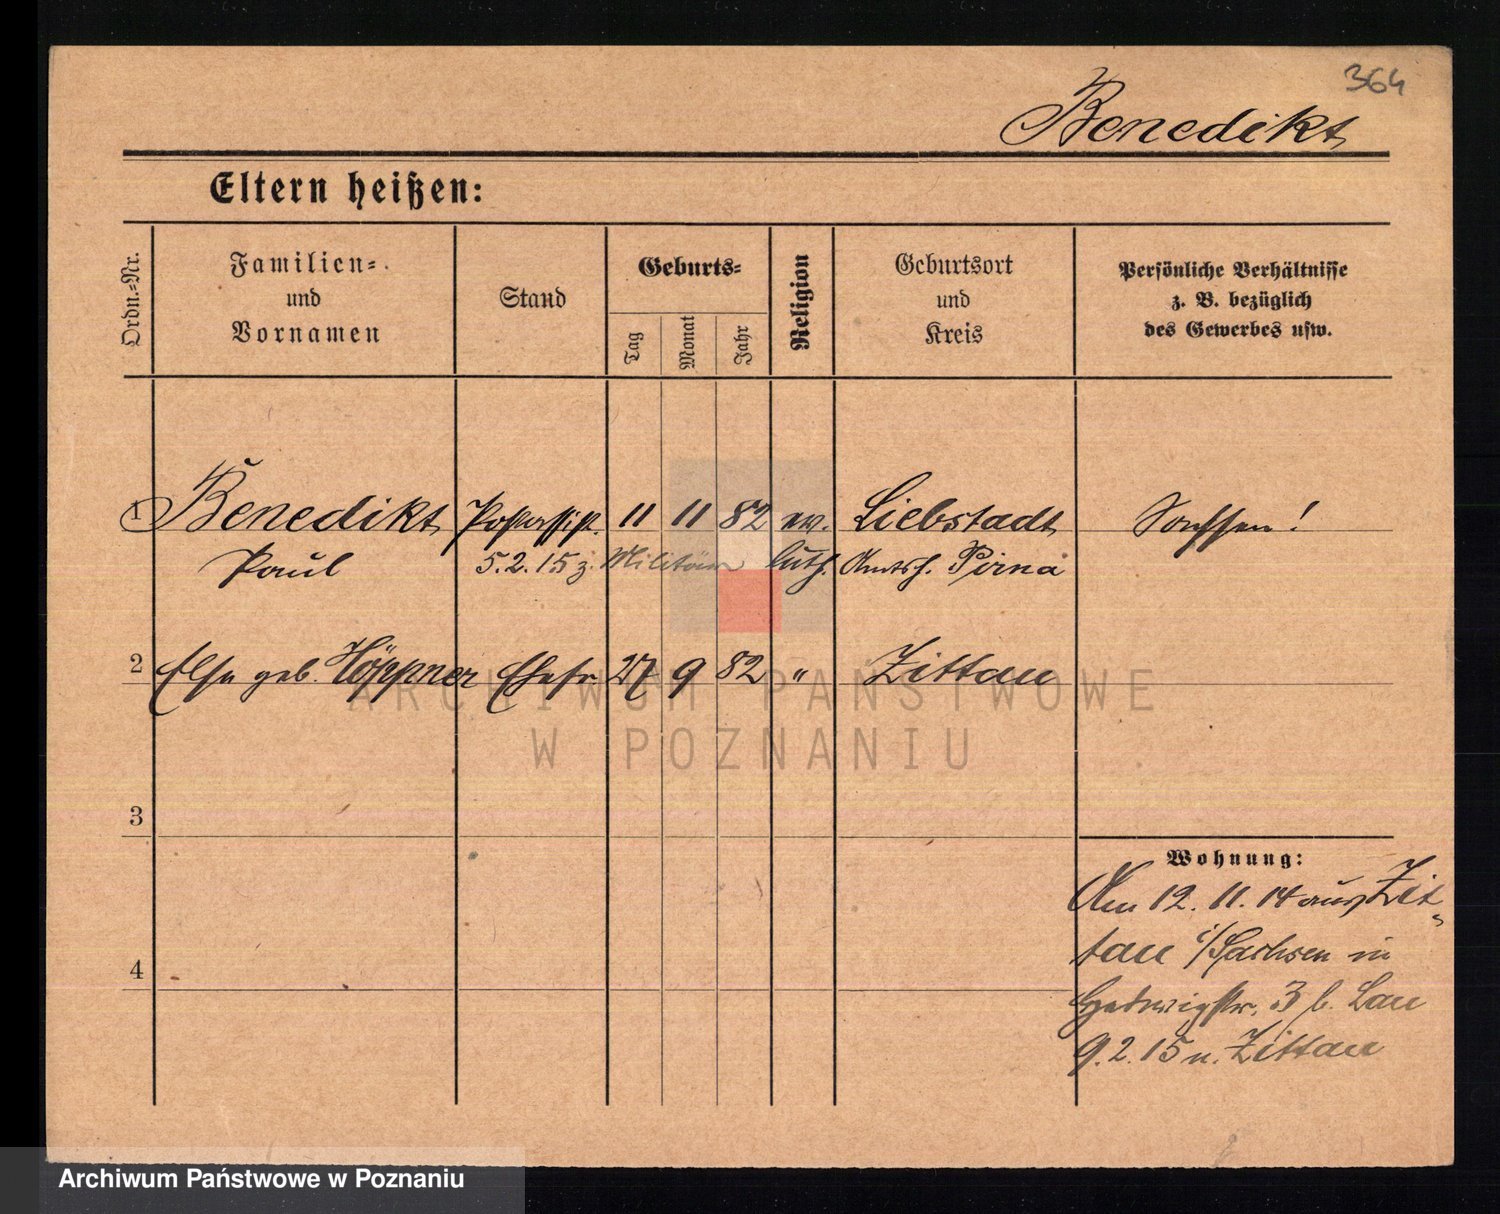 364
Benedikt
Eltern heißen:
Ordn.-Nr.
Familien-
und
Vornamen
Stand
Geburts-
Tag
Monat
Jahr
Religion
Geburtsort
und
Kreis
Persönliche Verhältnisse
z. B. bezüglich
des Gewerbes usw.
1 Benedikt Postassist. 11 11 82 ev. Liebstadt Sachsen!
Paul 5.2.15 z. Militär luth. Amtsh. Pirna
2 Else geb. Höppner Ehefr. 27 9 82 " Zittau
ARCHIWUM PAŃSTWOWE
W POZNANIU
3
Wohnung:
Am 12. 11. 14 aus Zit-
tau i/Sachsen in
4
Hedwigstr. 3 b. Lau
9.2.15 n. Zittau
Archiwum Państwowe w Poznaniu